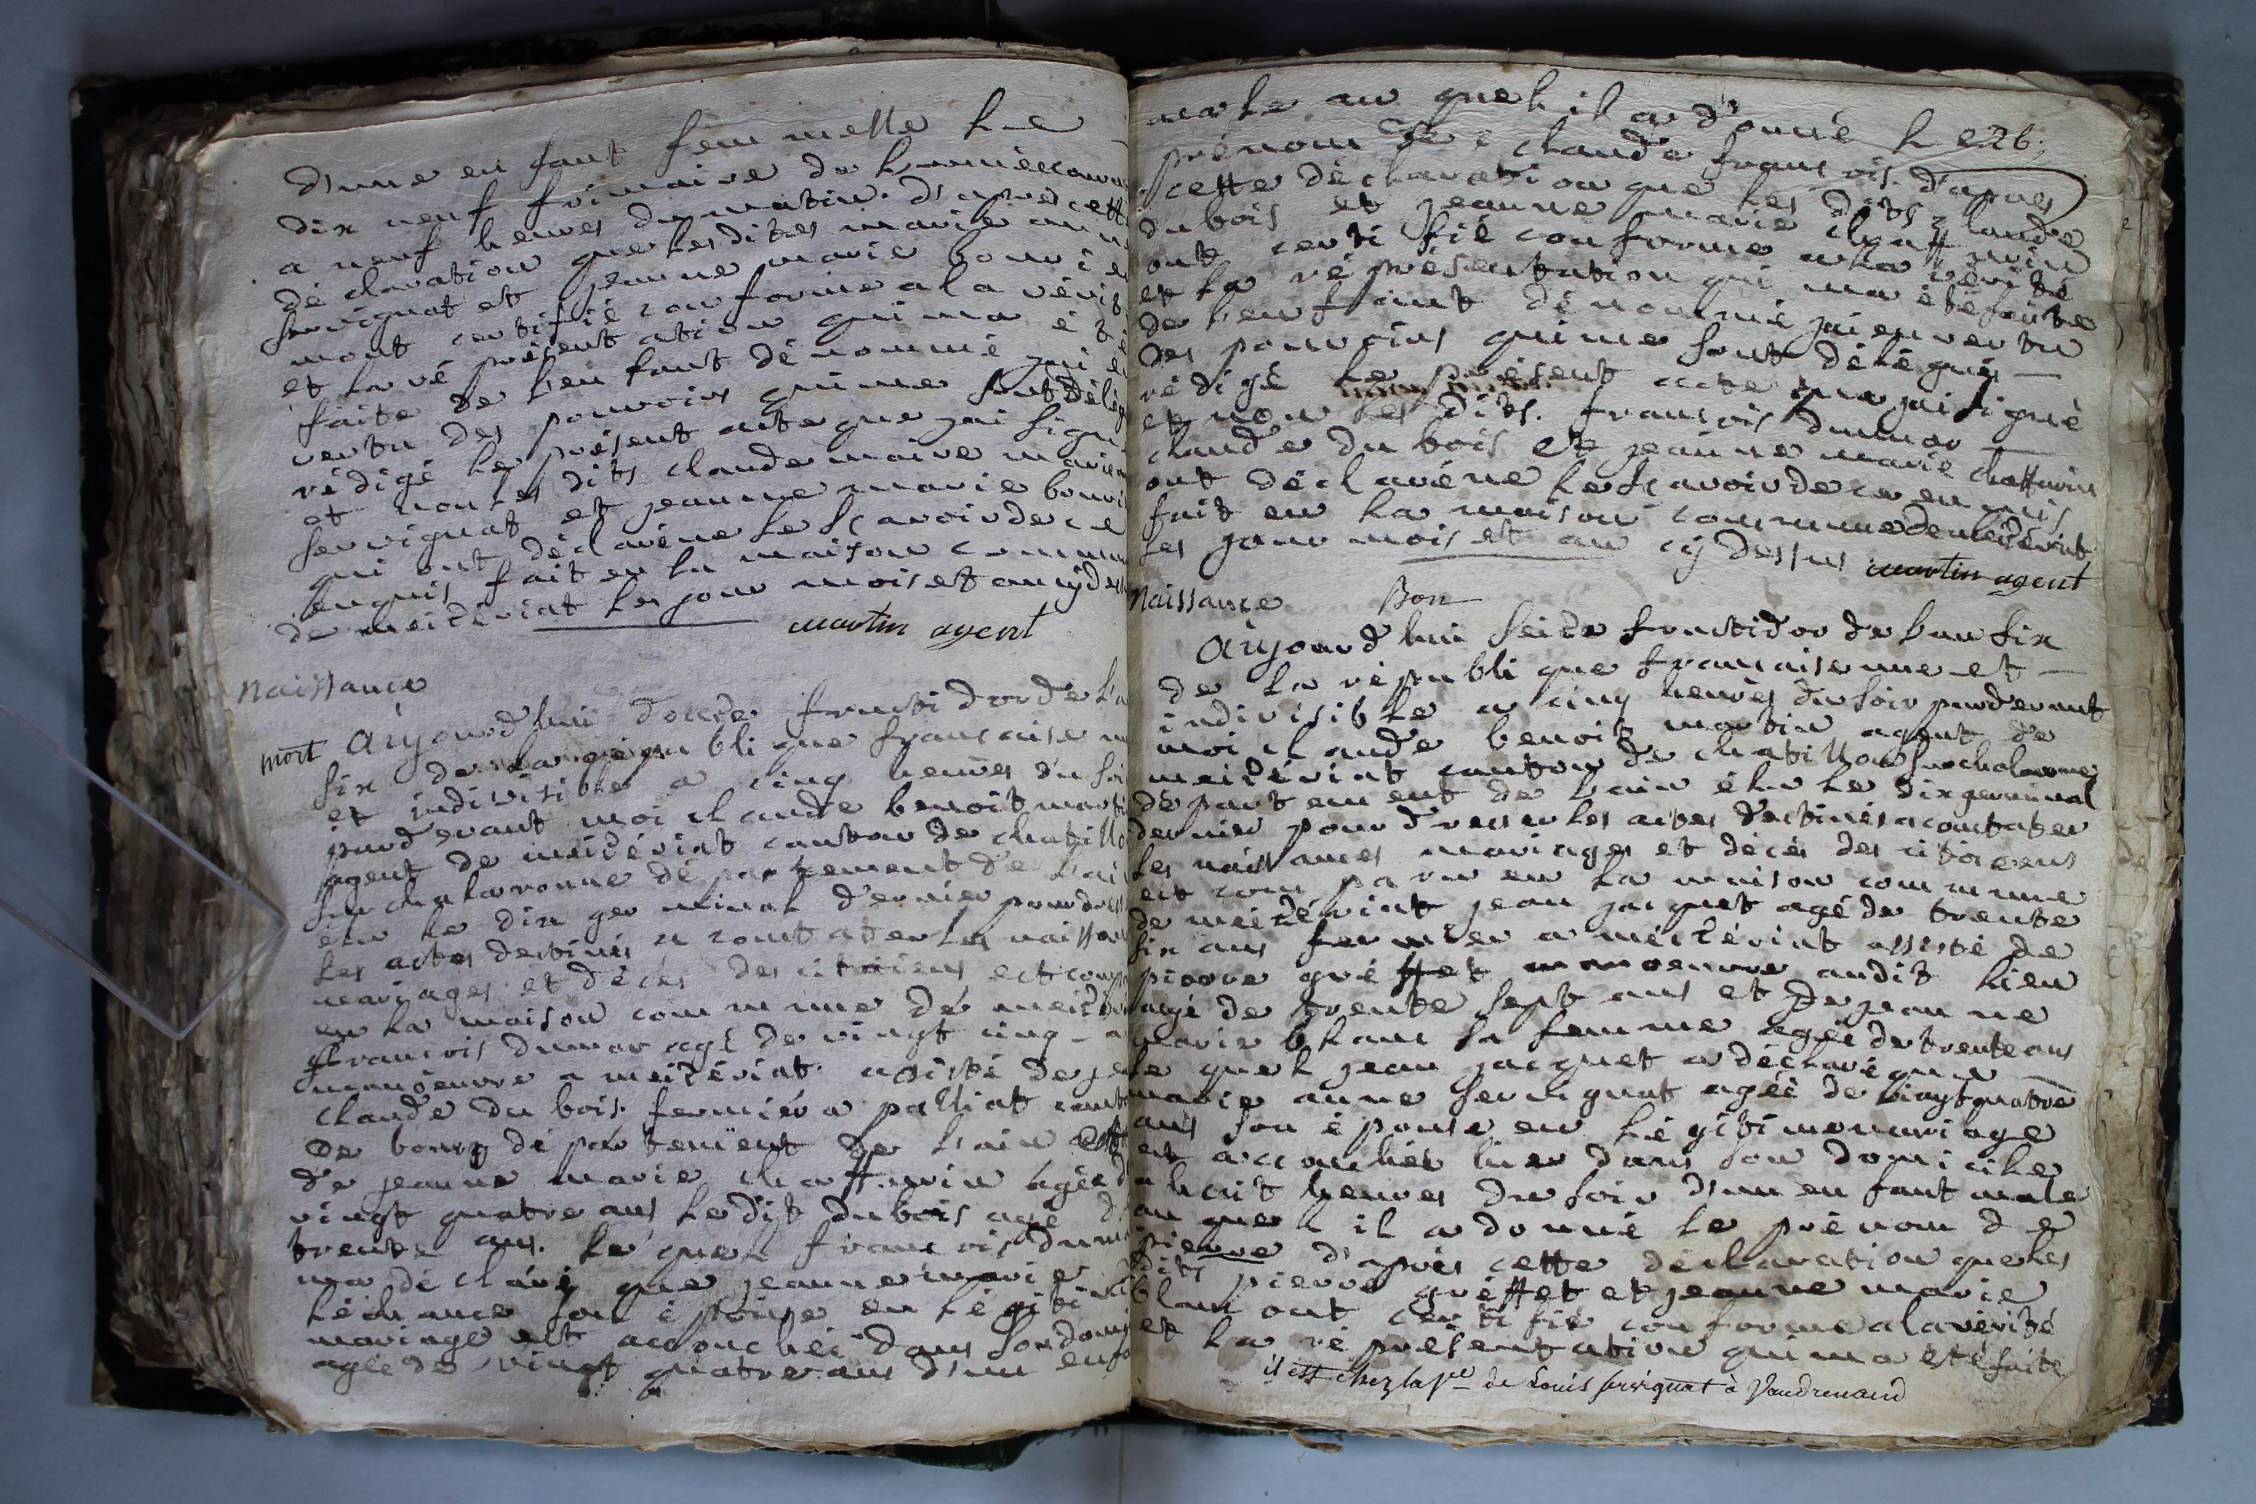 d'une en fant fem melle le
dix neuf frimaire de l'année cour
a neuf heures du matin. d'apres cett
dé claration que lesdites marie ann
servignat et jeanne marie bouvi
mont certifié con forme a la vérit
et la ré présent ation qui ma été
faite de l'en fant dé nommé jai en
vertu des pouvoirs qui me sont délég
rédigé le présent acte que jai sign
et non les dits claude maire marie an
servignat et jeanne marie bouvi
qui ont déclaré ne le sçavoir de ce
enquis fait en la maison commun
de meizériat les jour mois et an cydess
martin agent
naissance
mort aujourd'hui douze fructidor de l'a
six de la république française un
et indivisible a cinq heures du soi
pardevant moi claude benoit marti
agent de meizériat canton de chatillo
sur chalaronne dé partement de l'ai
élu le dix ger minal dernier pour dress
les actes destinés a constater les naissan
mariages et décès des citoiens est comp
en la maison com mune de meizér
françois dumar agé de vingt cinq a
manoeuvre a meizériat assisté de je
claude du bois fermier a palliat cant
de bourg dé par tement de l'ain et
de jeanne marie chaffurin agée d
vingt quatre ans ledit dubois agé d
trente ans. le quel françois dum
ma dé claré que jeanne marie
léchance son é pouse en légitim
mariage est accouchée dans son domi
agée de vingt quatre ans d'un enfa
male au quel il a donné le 26
prénom de claude françois. d'apres
cette dé claration que les dits claude
dubois et jeanne marie chaffurin
ont certi fié con forme a la vérité
et la ré présentation qui ma été faite
de l'en fant dé nommé jai en vertu
des pouvoirs qui me sont délégués
rédigé le présent acte que jai signé
et non les dits. françois dumar
claude du bois et jeanne marie chaffurin
ont déclaré ne le sçavoir de ce enquis
fait en la maison commune de meizériat
les jour mois et an cy dessus martin agent
Naissance Bon
aujourd'hui seize fructidor de l'an six
de la république française une et
indivisible a cinq heures du soir pardevant
moi claude benoit martin agent de
meizériat canton de chatillon sur chalaronne
département de l'ain élu le dix germinal
dernier pour dresser les actes destinés a constater
les naissances mariages et décès des citoiens
est com paru en la maison commune
de meizériat jean jacquet agé de trente
six ans fermier a méizériat assisté de
pierre gréffet manoeuvre audit lieu
agé de trente sept ans et de jeanne
marie blanc sa femme agée de trente ans
le quel jean jacquet a déclaré que
marie anne servignat agée de vingt quatre
ans son é pouse en légitime mariage
est accouchée hier dans son domicile
a huit heures du soir d'un en fant male
au quel il a donné le prénom de
pierre d'après cette déclaration que les
dits pierre gréffet et jeanne marie
blanc ont certi fié conforme a la vérité
et la ré présentation qui ma été faite
il est chez la ve de Louis servignat à Vandrenand